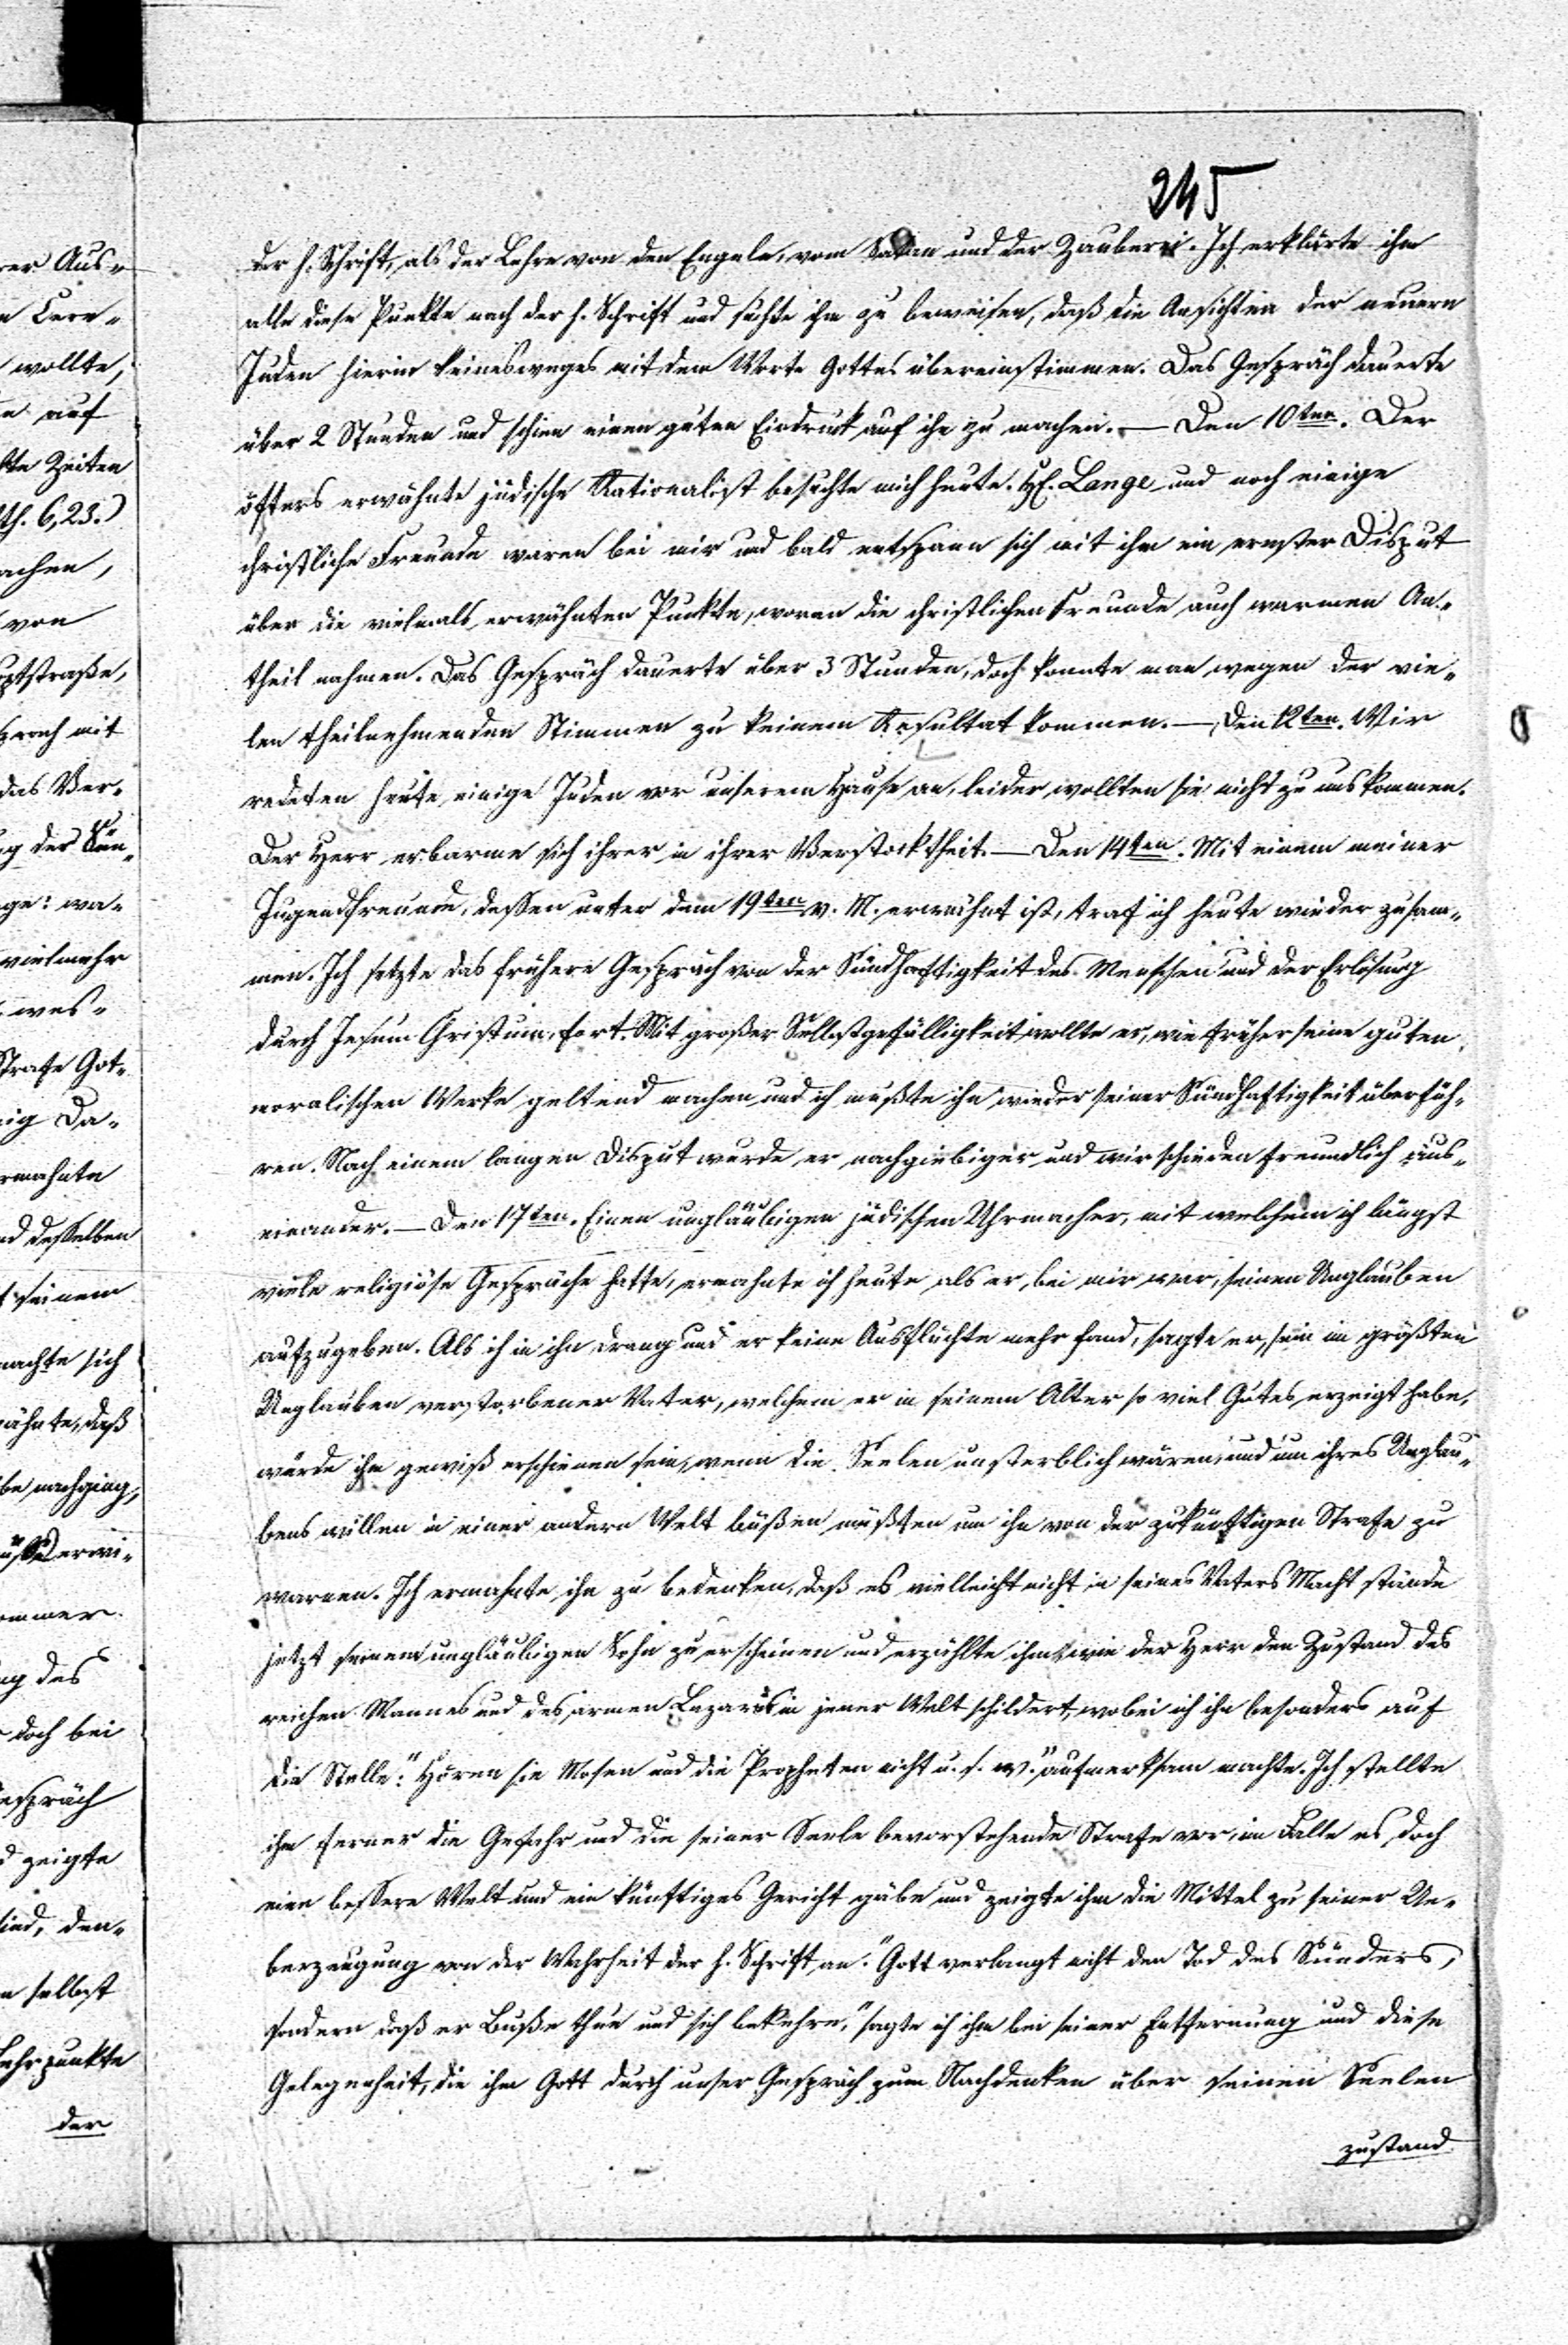 245
rer Aus-
n Cere-
wollte,
n auf
kte Zeiten
th. 6,23.)
achen,
von
uptstraße,
prach mit
das Ver-
g der Sün-
ge: wa-
vielmehr
wes-
Strafe Got-
nig Da-
rmahnte
nd desselben
t seinem
machte sich
wähnte, daß
be nachging,
erwi-
ommer
ng des
doch bei
Gespräch
d zeigte
sind, den-
n selbst
Lehrpunkte
der
der h. Schrift, als der Lehre von den Engeln, vom Satan und der Zauberei. Ich erklärte ihm
alle diese Punkte nach der h. Schrift und suchte ihm zu beweisen, daß die Ansichten der neuern
Juden hierin keinesweges mit dem Worte Gottes übereinstimmen. Das Gespräch dauerte
über 2 Stunden und schien einen guten Eindruck auf ihn zu machen. — Den 10ten. Der
öfters erwähnte jüdische Rationalist besuchte mich heute. H. Lange und noch einige
christliche Freunde waren bei mir und bald entspann sich mit ihm ein ernster Disput
über die vielmals erwähnten Punkte, woran die christlichen Freunde auch warmen An-
theil nahmen. Das Gespräch dauerte über 3 Stunden, doch konnte man wegen der vie-
len theilnehmenden Stimmen zu keinem Resultat kommen. — Den 12ten. Wir
redeten heute einige Juden vor unserem Hause an, leider wollten sie nicht zu uns kommen.
Der Herr erbarme sich ihrer in ihrer Verstocktheit. — Den 14ten. Mit einem meiner
Jugendfreunde, dessen unter dem 19ten v. M. erwähnt ist, traf ich heute wieder zusam-
men. Ich setzte das frühere Gespräch von der Sündhaftigkeit des Menschen und der Erlösung
durch Jesum Christum, fort. Mit großer Selbstgefälligkeit wollte er, wie früher seine guten
moralischen Werke geltend machen und ich mußte ihn wieder seiner Sündhaftigkeit überfüh-
ren. Nach einem langen Disput wurde er nachgiebiger und wir schieden freundlich aus-
einander. — Den 17ten. Einen ungläubigen jüdischen Uhrmacher, mit welchem ich längst
viele religiöse Gespräche hatte, ermahnte ich heute als er bei mir war, seinen Unglauben
aufzugeben. Als ich in ihn drang und er keine Ausflüchte mehr fand, sagte er, sein im größten
Unglauben verstorbener Vater, welchem er in seinem Alter so viel Gutes erzeigt habe,
würde ihm gewiß erschienen sein, wenn die Seelen unsterblich wären, und um ihres Unglau-
bens willen in einer andern Welt büßen müßten um ihn von der zukünftigen Strafe zu
warnen. Ich ermahnte ihn zu bedenken, daß es vielleicht nicht in seines Vaters Macht stände
jetzt seinem ungläubigen Sohn zu erscheinen und erzählte ihm, wie der Herr den Zustand des
reichen Mannes und des armen Lazarus in jener Welt schildert, wobei ich ihn besonders auf
die Stelle: "Hören sie Mosen und die Propheten nicht u. s. w." aufmerksam machte. Ich stellte
ihm ferner die Gefahr und die seiner Seele bevorstehende Strafe vor, im Falle es doch
eine bessere Welt und ein künftiges Gericht gäbe und zeigte ihm die Mittel zu seiner Ue-
berzeugung von der Wahrheit der h. Schrift an. "Gott verlangt nicht den Tod des Sünders,
sondern daß er Buße thue und sich bekehre," sagte ich ihm bei seiner Entfernung und diese
Gelegenheit, die ihm Gott durch unser Gespräch zum Nachdenken über seinen Seelen
zustand